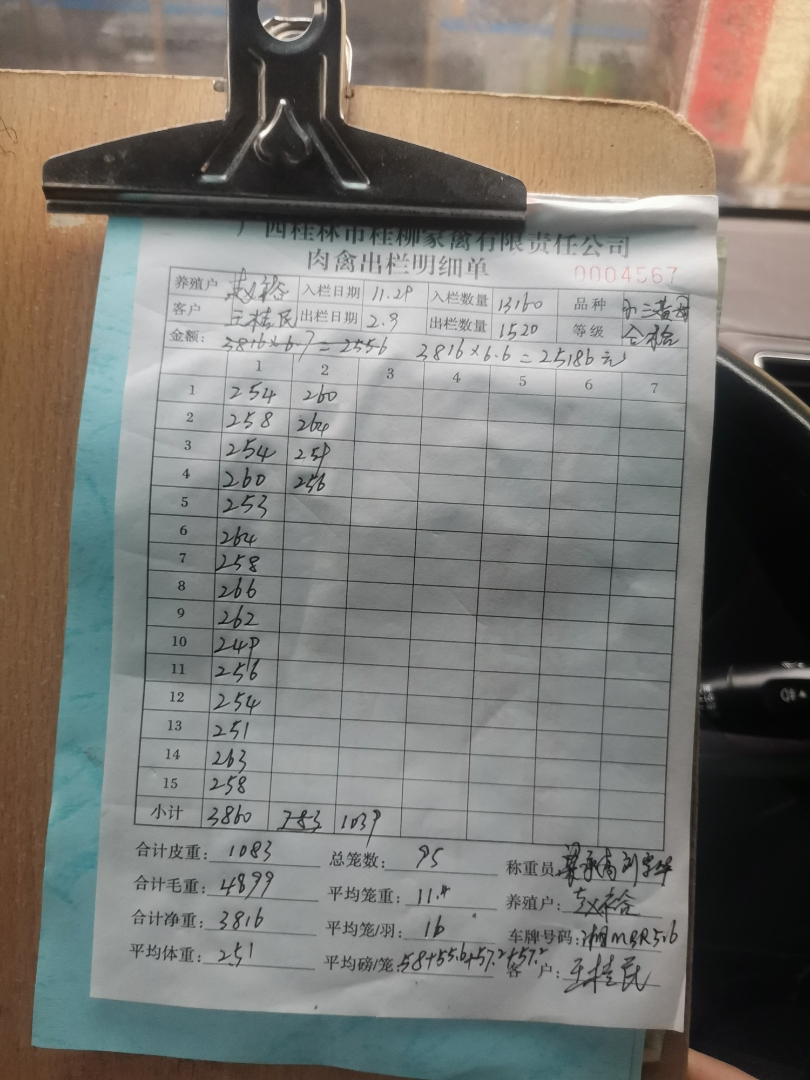 广西桂林市桂柳家禽有限责任公司
肉禽出栏明细单
0004567
养殖户 赵裕 入栏日期 11.29 入栏数量 13160 品种
客户 王桂民 出栏日期 2.9 出栏数量 1520 等级
金额: 3816×6.7=2556 3816×6.6=25186元
1 2 3 4 5 6 7
1 254 260
2 258 264
3 254 259
4 260 256
5 253
6 264
7 258
8 266
9 262
10 249
11 256
12 254
13 251
14 263
15 258
小计 3860 783 1039
合计皮重: 1083 总笼数: 95 称重员:
合计毛重: 4899 平均笼重: 11.4 养殖户: 赵裕
合计净重: 3816 平均笼/羽: 16 车牌号码: 湘MBR5.6
平均体重: 251 平均磅/笼: 58+55.6+57.2+57.2 客户: 王桂民